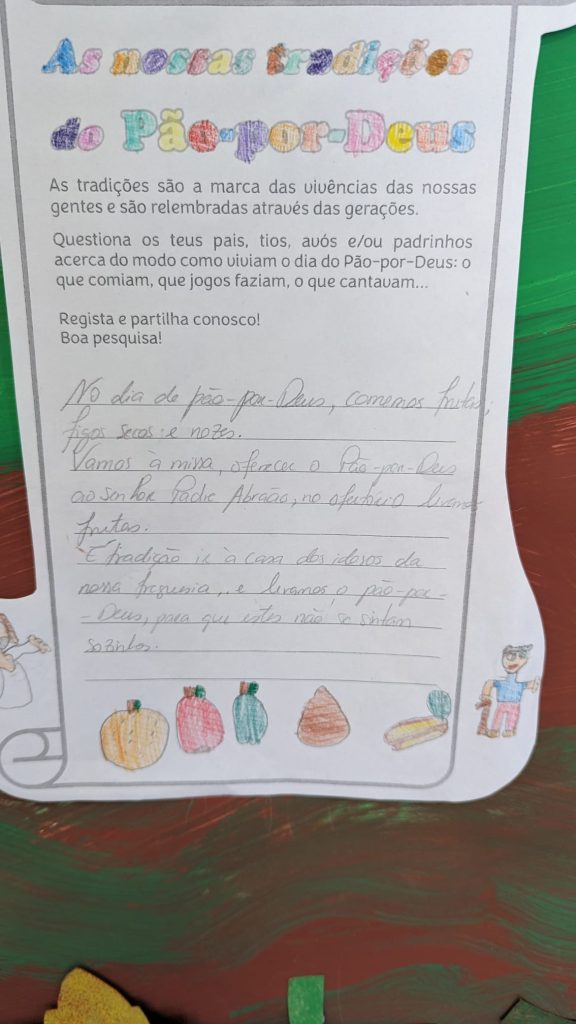 As nossas tradições
do Pão-por-Deus
As tradições são a marca das vivências das nossas
gentes e são relembradas através das gerações.
Questiona os teus pais, tios, avós e/ou padrinhos
acerca do modo como viviam o dia do Pão-por-Deus: o
que comiam, que jogos faziam, o que cantavam...
Regista e partilha conosco!
Boa pesquisa!
No dia de pão-por-Deus, comemos frutas,
figos secos e nozes.
Vamos à missa, oferecer o Pão-por-Deus
ao senhor Padre Abraão, no ofertório levamos
frutas.
É tradição ir à casa dos idosos da
nossa freguesia, e levamos o pão-por-
- Deus, para que estes não se sintam
sozinhos.